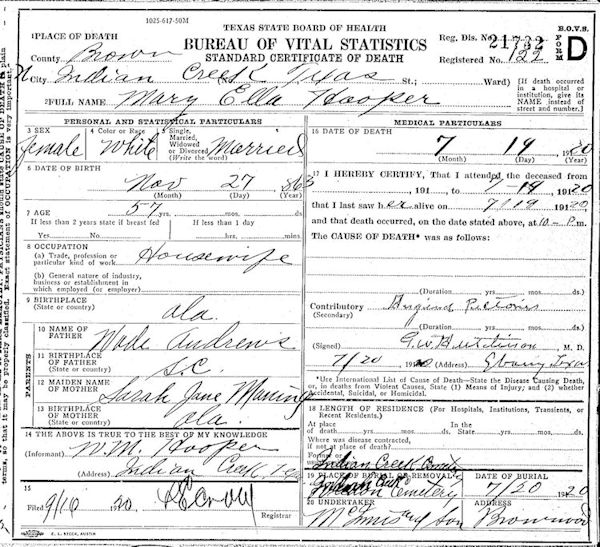 1025-617-50M
TEXAS STATE BOARD OF HEALTH
B.O.V.S.
BUREAU OF VITAL STATISTICS
STANDARD CERTIFICATE OF DEATH
Reg. Dis. No. 21732
Registered No. 122
FORM D
1 PLACE OF DEATH
County Brown
City Indian Creek Texas St.; Ward)
[If death occurred in a hospital or institution, give its NAME instead of street and number.]
2 FULL NAME Mary Ella Hooper
PERSONAL AND STATISTICAL PARTICULARS
3 SEX female
4 Color or Race White
5 Single, Married, Widowed or Divorced (Write the word) Married
6 DATE OF BIRTH
Nov 27 1863
(Month) (Day) (Year)
7 AGE 57 yrs. mos. ds.
If less than 2 years state if breast fed If less than 1 day
hrs. min.
8 OCCUPATION
(a) Trade, profession or particular kind of work Housewife
(b) General nature of industry, business or establishment in which employed (or employer)
9 BIRTHPLACE
(State or country) ala.
PARENTS
10 NAME OF FATHER Wade Andrews
11 BIRTHPLACE OF FATHER
(State or country) S.C.
12 MAIDEN NAME OF MOTHER Sarah Jane
13 BIRTHPLACE OF MOTHER
(State or country) ala.
14 THE ABOVE IS TRUE TO THE BEST OF MY KNOWLEDGE
(Informant) W.M. Hooper
(Address) Indian Creek Tex
15
Filed 9/16 1920.
Registrar
MEDICAL PARTICULARS
16 DATE OF DEATH
7 19 1920
(Month) (Day) (Year)
17 I HEREBY CERTIFY, That I attended the deceased from
191 , to 7-19 1920
that I last saw her alive on 7/19 1920,
and that death occurred, on the date stated above, at 10- P.m.
The CAUSE OF DEATH* was as follows:
(Duration) yrs. mos. ds.
Contributory
(Secondary)
(Duration) yrs. mos. ds.
(Signed) M. D.
7/20 1920 (Address) Ebony Texas
*Use International List of Cause of Death—State the Disease Causing Death, or, in deaths from Violent Causes, State (1) Means of Injury; and (2) whether Accidental, Suicidal, or Homicidal.
18 LENGTH OF RESIDENCE (For Hospitals, Institutions, Transients, or Recent Residents.)
At place of death yrs. mos. ds. In the State yrs. mos. ds.
Where was disease contracted, if not at place of death?
Former or
Indian Creek
19 PLACE OF BURIAL OR REMOVAL
Cemetery
DATE OF BURIAL
7/20 1920
20 UNDERTAKER
and Son
ADDRESS
Brownwood
E. L. STECK, AUSTIN